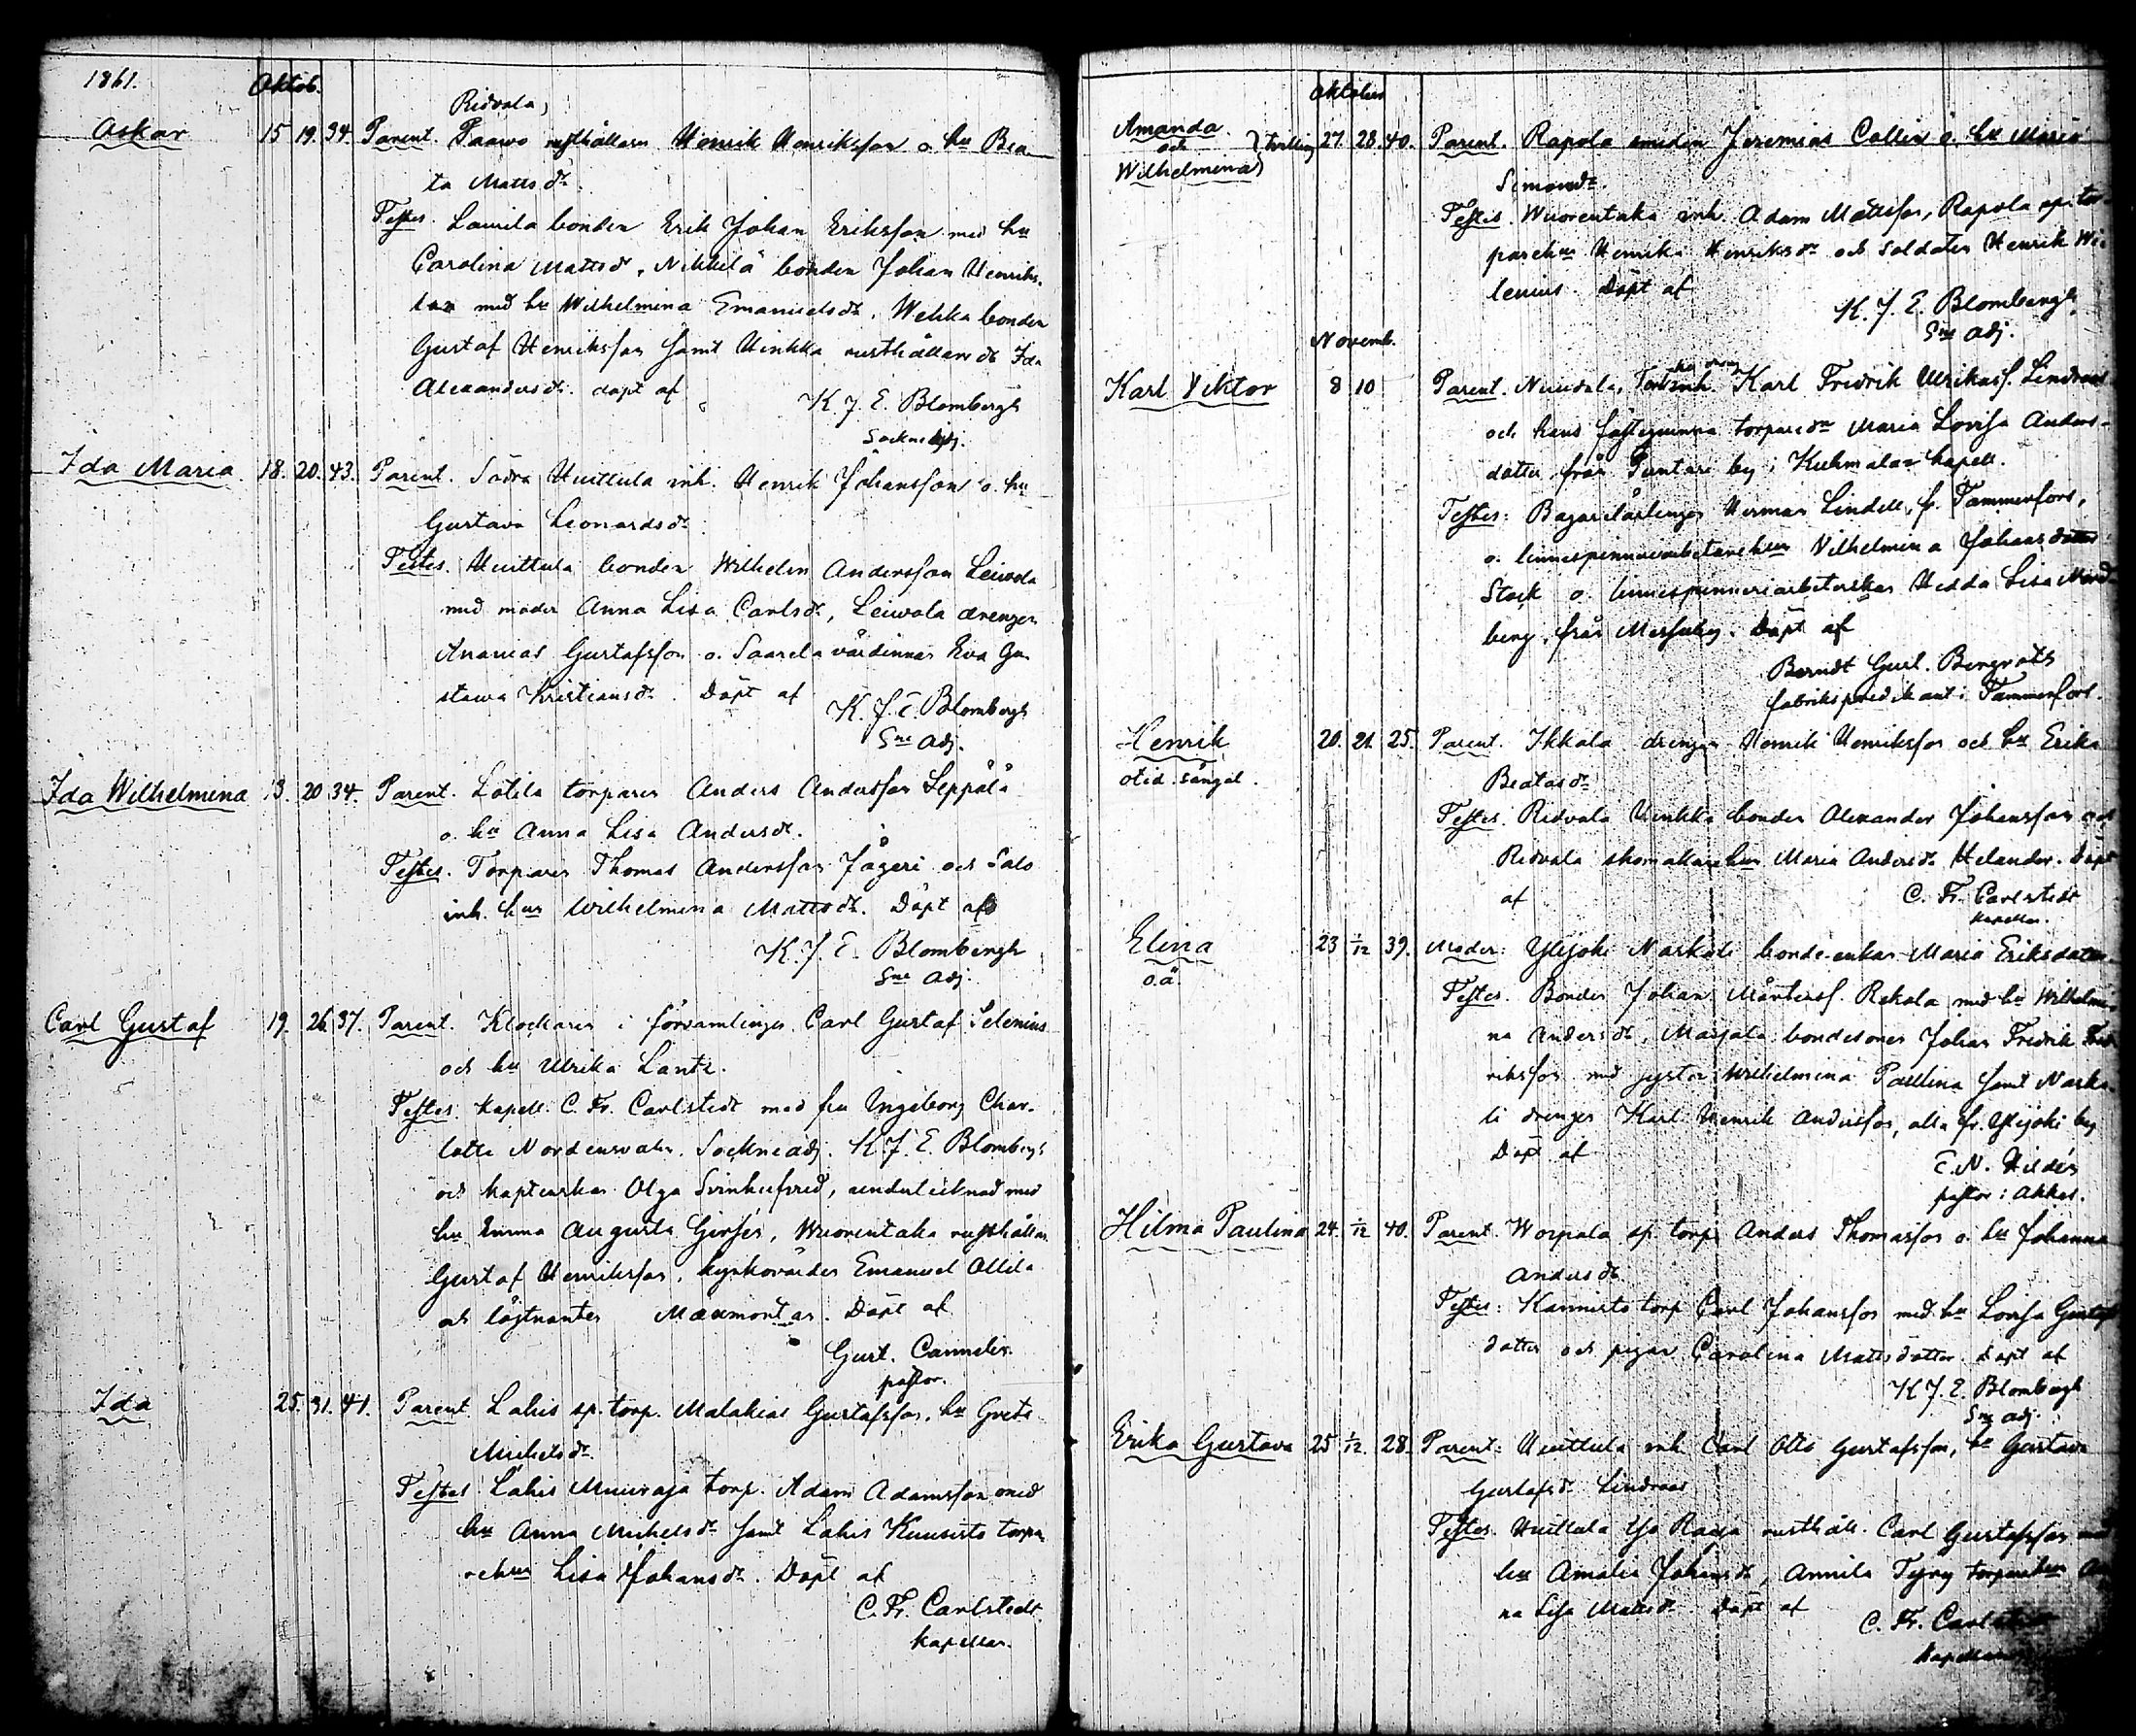 1861. Oktob.
Ridvala,
Askar 15 19. 34. Parent. Paawo rusthållaren Henrik Henriksson o. hu Bea-
ta Mattsdr.
Testes. Laurila bonden Erik Johan Eriksson med hu
Carolina Mattsdr, Nikkilä bonden Johan Henriks-
son med hu Wilhelmina Emanuelsdr. Wekka bonden
Gustaf Henriksson samt Hinkka rusthållaredr Ida
Alexandersdr. döpt af
K. J. E. Blombergh
Ida Maria 18. 20. 43. Parent. Södra Huittula inh. Henrik Johansson o. hu
Gustava Leonardsdr.
Testes. Huittula bonden Wilhelm Andersson Leivola
med moder Anna Lisa Carlsdr, Leiwola drengen
Ananias Gustafsson o. Saarela värdinnan Eva Gu-
stawa Kristiansdr. Döpt af
K. J. E. Blombergh
Sne adj.
Ida Wilhelmina 13. 20 34. Parent. Lotila torparen Anders Andersson Seppälä
o. hu Anna Lisa Andersdr.
Testes. Torparen Thomas Andersson Jägeri och Salo
inh. hun Wilhelmina Mattsdr. Döpt af
K. J. E. Blombergh
Sne adj.
Carl Gustaf 19. 26. 37. Parent. Klockaren i församlingen Carl Gustaf Selenius
och hu Ulrika Lantz.
Testes. Kapell. C. Fr. Carlstedt med fru Ingeborg Char-
lotte Nordensvan. Sockneadj. K. J. E. Blombergh
och kaptenskan Olga Svinhufvud, under eiknad med
hu Emma Augusta Girsén, Wuorentaka rusthållar.
Gustaf Henriksson, kyrkovärden Emanuel Ollila
och löjtnanten Maxmontan. Döpt af
Gust. Cannelin
pastor.
Ida 25. 31. 41. Parent. Lahis sp. torp. Malakias Gustafsson, hu Greta
Michelsdr.
Testes. Lahis Muuraja torp. Adam Adamsson med
hu Anna Michelsdr samt Lahis Kuusisto torpa-
rehun Lisa Johansdr. Döpt af
C. Fr. Carlstedt.
kapellan.
Oktober
Amanda och Wilhelmina } tvilling 27. 28. 40. Parent. Rapola smeden Jeremias Collin o. hu Maria
Simonsdr.
Testes. Wuorentaka inh. Adam Mattsson, Rapola sp. tor-
parehun Henrika Henriksdr och soldaten Henrik Wi-
lenius. Döpt af
K. J. E. Blombergh,
Sne adj.
Novemb.
Karl Viktor 8 10 Parent. Karl Fredrik Ulrikass. Lindroos
och hans fästeqvinna torparedr Maria Lovisa Anders-
dotter från Puntari by i Kuhmalax kapell.
Testes: Bagarelärlingen Herman Lindell, fr. Tammerfors,
o. linnespinneriarbetarehun Vilhelmina Johansdotter
Stock o. linnespinneriarbeterskan Hedda Lisa Nord-
berg, från Messuby. Döpt af
Berndt Gust. Bergroth
fabrikspredikant i Tammerfors.
Henrik 20. 21. 25. Parent. Ikkala drengen Henrik Henriksson och hu Erika
otid. sängal. Beatasdr
Testes. Ridvala Hinkka bonden Alexander Johansson och
Ridvala skomakarehun Maria Andersdr Helander. Döpt
af C. Fr. Carlstedt
kapellan.
Elina 23 1/12 39. Moder: Ylijoki Naskali bonde-enkan Maria Eriksdotter.
o.ä. Testes. Bonden Johan Mårtenss. Rekola med hu Wilhelmi-
na Andersdr, Marjala bondesonen Johan Fredrik Fred-
riksson med syster Wilhelmina Paulina samt Naska-
li drengen Karl Henrik Andersson, alla fr. Ylijoki by
Döpt af
E. N. Hildén
pastor i Akkas.
Hilma Paulina 24. 1/12 40. Parent. Woipala sp. torp. Anders Thomasson o. hu Johanna
Andersdr.
Testes: Kannisto torp. Carl Johansson med hu Lovisa Gustafs
dotter och pigan Carolina Mattsdotter. Döpt af
K. J. E. Blombergh
Sne adj.
Erika Gustava 25 1/12. 28. Parent: Huittula inh. Carl Otto Gustafsson, hu Gustava
Gustafsdr Lindroos
Testes. Huittula Yli Raja rusthåll. Carl Gustafsson med
hu Amalia Johansdr, Annila Tyry torparehun An
na Lisa Mattsdr. Döpt af
C. Fr. Carlstedt
kapellan